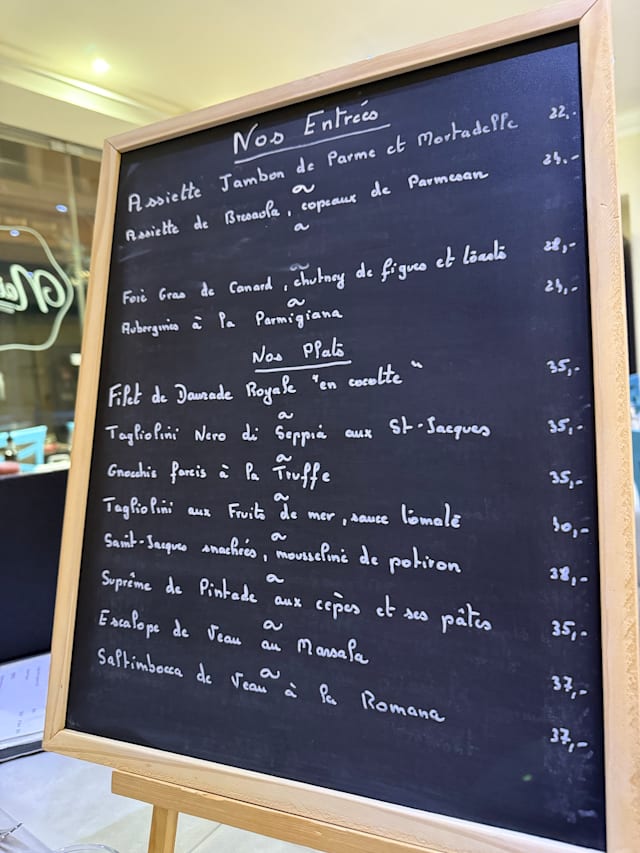 Nos Entrées
Assiette Jambon de Parme et Mortadelle 22.-
Assiette de Bresaola, copeaux de Parmesan 24.-
Foie Gras de Canard, chutney de figues et toasts 28,-
Aubergines à la Parmigiana 24,-
Nos Plats
Filet de Daurade Royale "en cocotte" 35,-
Tagliolini Nero di Seppia aux St-Jacques 35,-
Gnocchis farcis à la Truffe 35,-
Tagliolini aux Fruits de mer, sauce tomate 30,-
Saint-Jacques snackées, mousseline de potiron 38,-
Suprême de Pintade aux cèpes et ses pâtes 35,-
Escalope de Veau au Marsala 37,-
Saltimbocca de Veau à la Romana 37,-